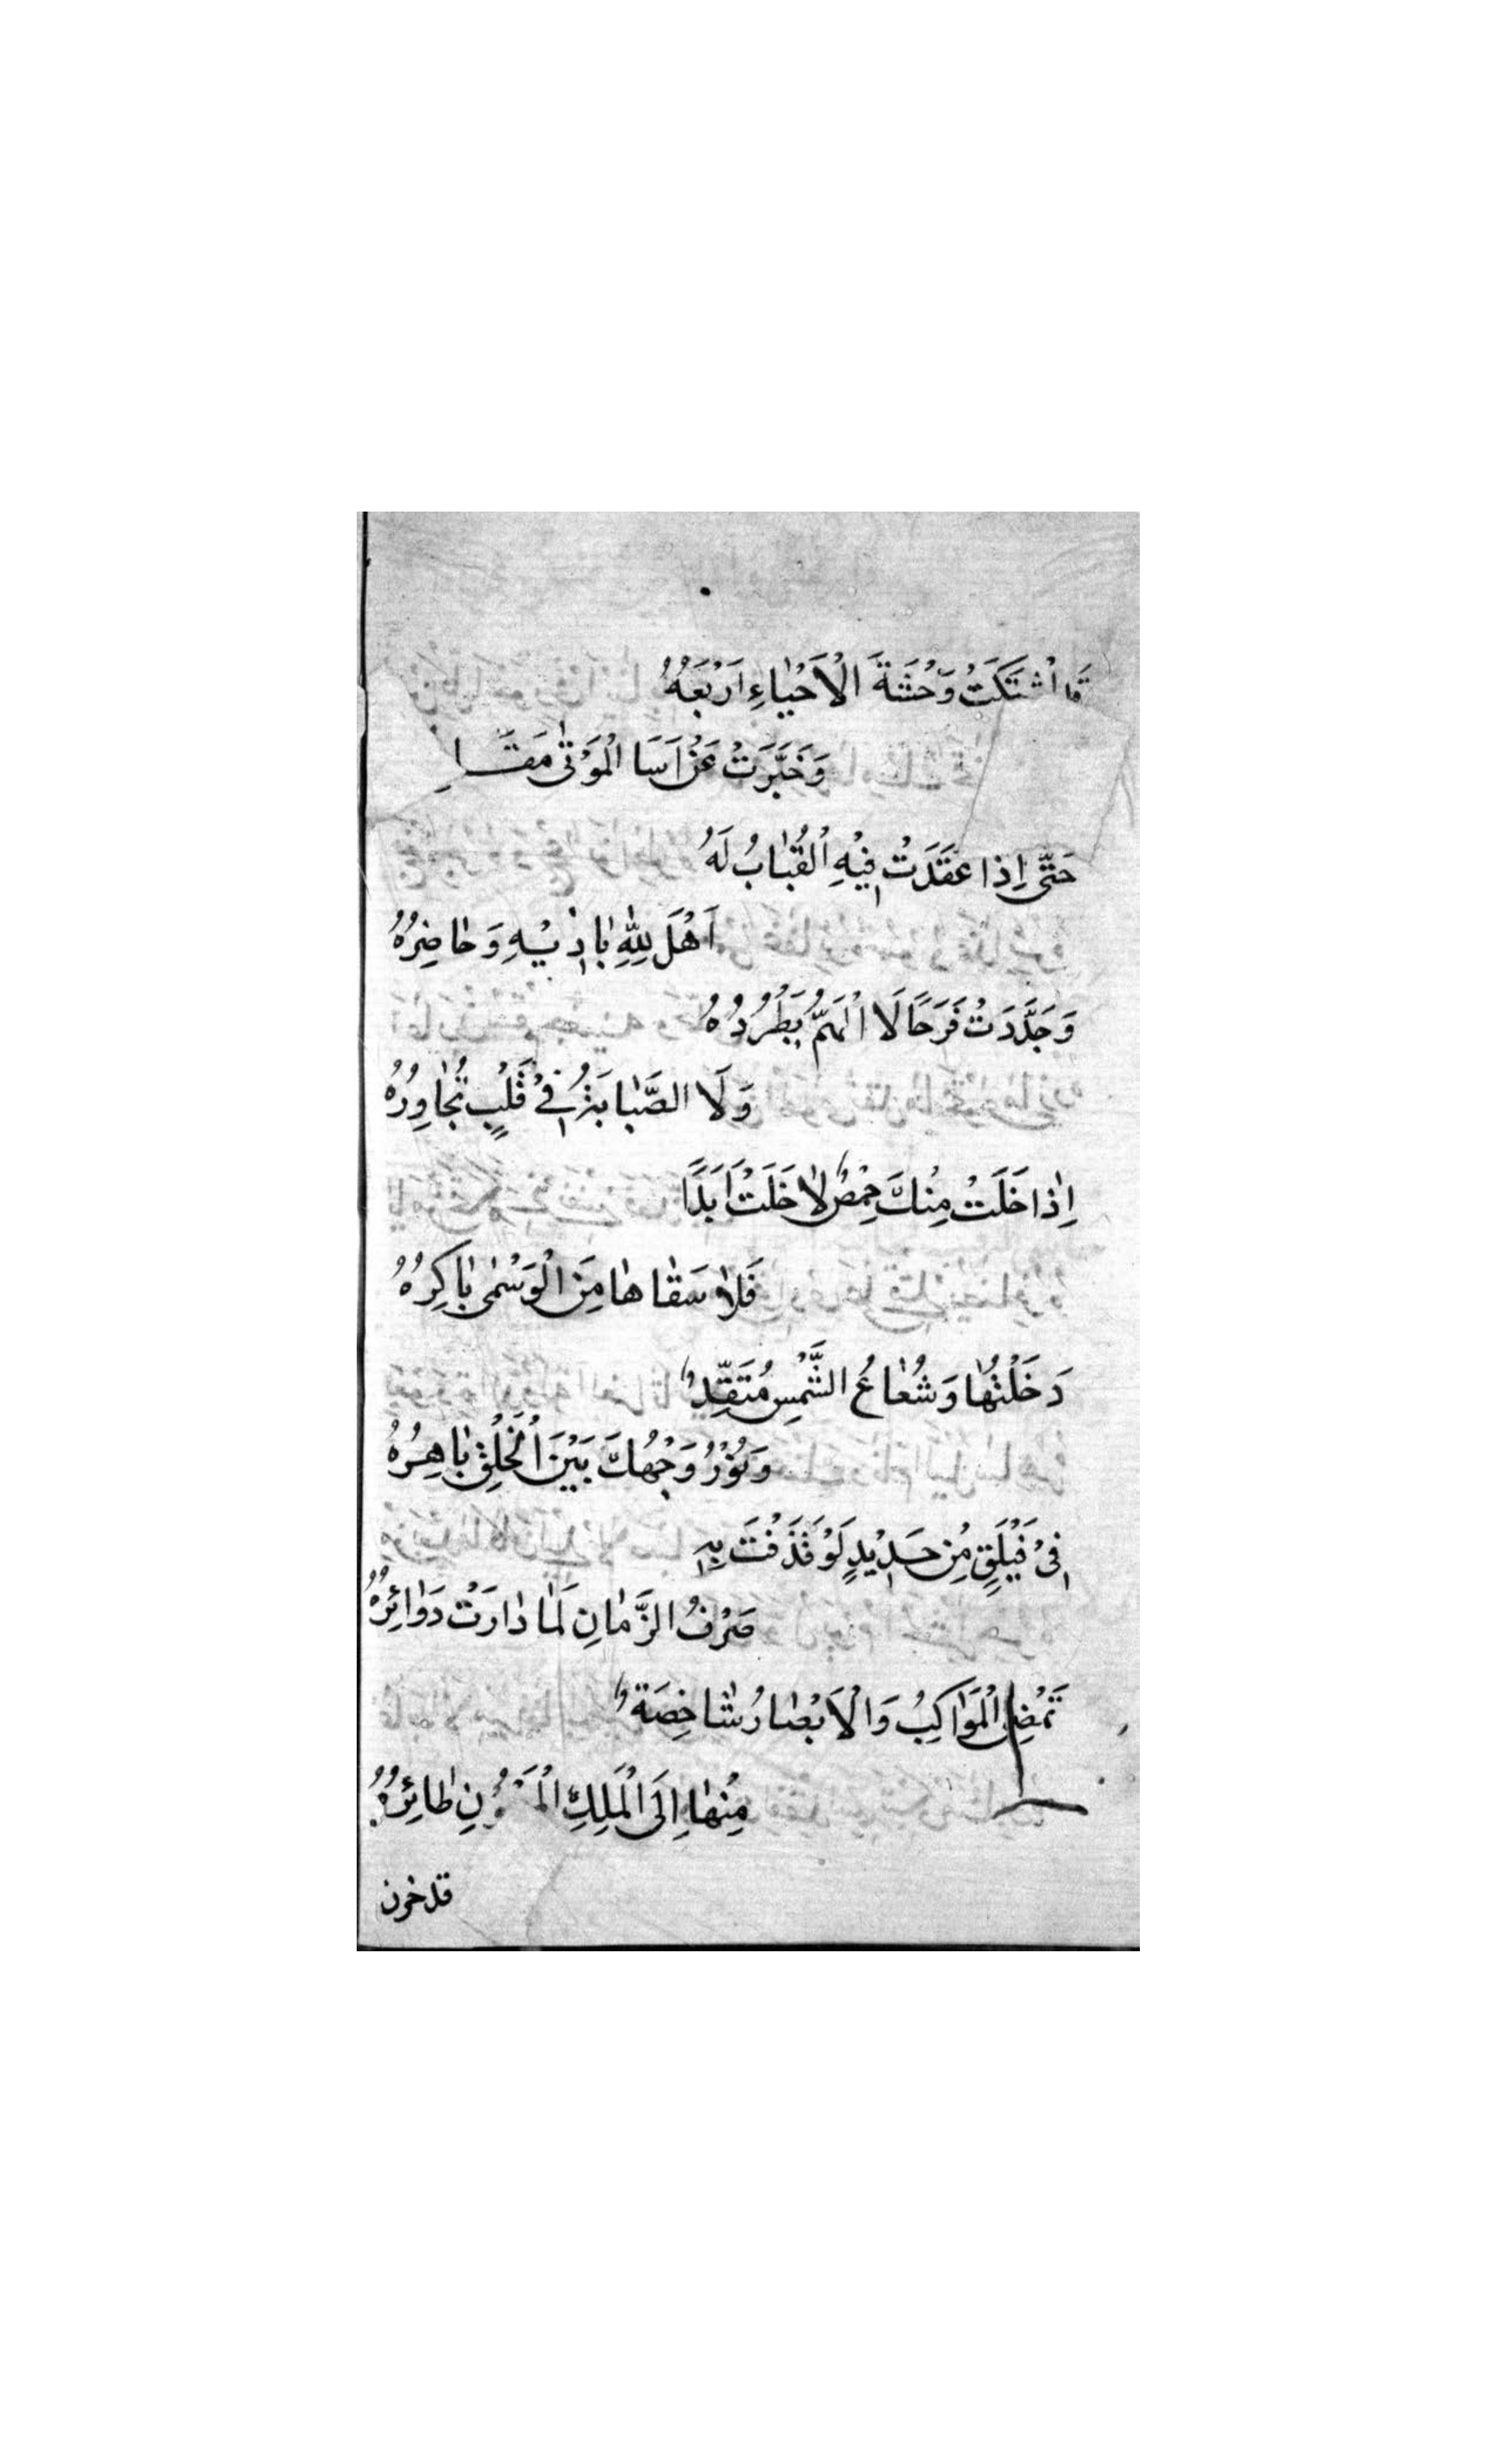 قَا اشْتَكَتْ وَحْشَةَ الْاَحْيٰاءِ اَرْبَعُهُ
وَخَبَّرَتْ عَنْ اَسَا الْمَوْتٰى مَقَا
حَتّٰى اِذا عقَدَتْ فِيْهِ الْقُبٰابُ لَهُ
اَهْلَ لِلّٰهِ بٰادِيْهِ وَحٰاضِرُهُ
وَجَدَّدَتْ فَرَحًا لَا الْهَمُّ يَطْرُدُهُ
وَلَا الصَّبٰابَةُ فِيْ قَلْبٍ تُجٰاوِرُهُ
اِذٰا خَلَتْ مِنْكَ حِمْصٌ لٰا خَلَتْ اَبَدًا
فَلٰا سَقٰاهٰا مِنَ الْوَسْمٰى بٰاكِرُهُ
دَخَلْتُهٰا وَشُعٰاعُ الشَّمْسِ مُتَّقِدٌ
وَنُوْرُ وَجْهِكَ بَيْنَ الْخَلْقِ بٰاهِرُهُ
فِىْ فَيْلَقٍ مِنْ حَدِيْدٍ لَوْ قَذَفْتَ بِهِ
صَرْفُ الزَّمٰانِ لَمٰا دٰارَتْ دَوٰائِرُهُ
تَمْضِى الْمَوٰاكِبُ وَالْاَبْصٰارُ شٰاخِصَةٌ
مِنْهٰا اِلَى الْمَلِكِ الْمَيْمُوْنِ طٰائِرُهُ
قد حزن